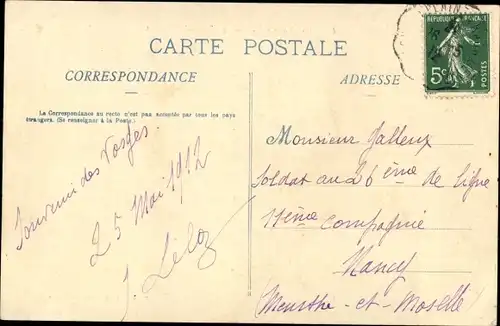 CARTE POSTALE
CORRESPONDANCE
ADRESSE
La Correspondance au recto n'est pas acceptée par tous les pays
étrangers. (Se renseigner à la Poste.)
RÉPUBLIQUE FRANÇAISE
5c
POSTES
Souvenir des Vosges
25 Mai 1912
Monsieur
Soldat au 26ème de ligne
11ème Compagnie
Nancy
Meurthe-et-Moselle